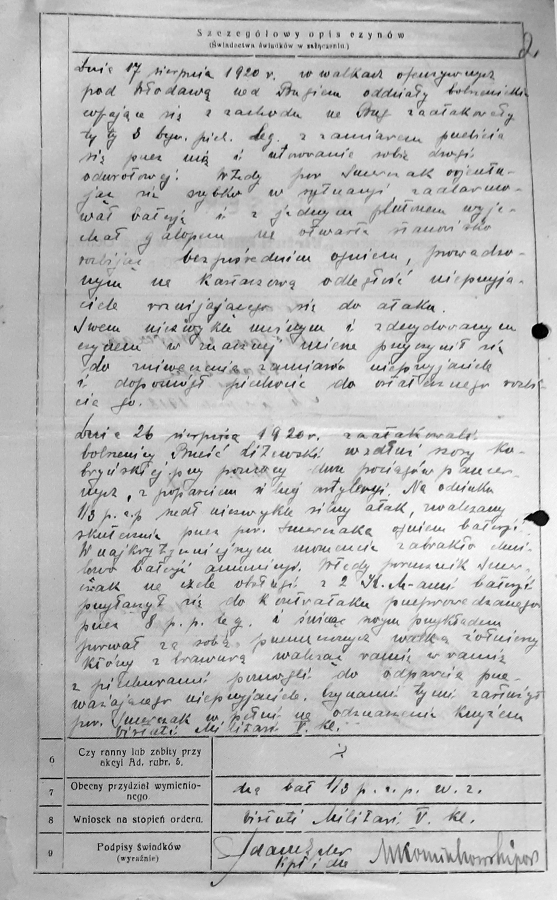 2.
Szczegółowy opis czynów
(Świadectwa świadków w załączeniu.)
Dnia 17 sierpnia 1920 r. w walkach ofensywnych
pod Włodawą nad Bugiem oddziały bolszewickie
cofające się z zachodu na Bug zaatakowały
tyły 8 bryg. piech. Leg. z zamiarem przebicia
się przez nią i utorowania sobie drogi
odwrotowej. Wtedy por. Smerczak orjentu-
jąc się szybko w sytuacji zaalarmo-
wał baterję i z jednym plutonem wyje-
chał galopem na otwarte stanowisko
rozbijając bezpośrednim ogniem, prowadzo-
nym na kartaczową odległość nieprzyja-
ciela rozwijającego się do ataku.
Swem niezwykle mężnym i zdecydowanym
czynem w znacznej mierze przyczynił się
do zniweczenia zamiarów nieprzyjaciela
i dopomógł piechocie do ostatecznego rozbi-
cia go.
Dnia 26 sierpnia 1920 r. zaatakowali
bolszewicy Brześć Litewski wzdłuż szosy Ko-
bryńskiej przy pomocy dwu pociągów pancer-
nych, z poparciem silnej artylerji. Na odcinku
1/3 p.a.p. szedł niezwykle silny atak, zwalczany
skutecznie przez por. Smerczaka ogniem baterji.
W najkrytyczniejszym momencie zabrakło chwi-
lowo baterji amunicji. Wtedy porucznik Smer-
czak na czele obsługi z 2 K.M-ami baterji
przyłączył się do kontrataku przeprowadzanego
przez 8 p.p. Leg. i świecąc swym przykładem
porwał za sobą przemęczonych walką żołnierzy
którzy z brawurą walcząc ramię w ramię
z piechurami pomogli do odparcia prze-
ważającego nieprzyjaciela. Czynami tymi zasłużył
por. Smerczak w pełni na odznaczenie krzyżem
Virtuti Militari V. kl.
6 Czy ranny lub zabity przy akcyi Ad. rubr. 5.
7 Obecny przydział wymienionego. dca bat 1/3 p.a.p. w. z.
8 Wniosek na stopień orderu. Virtuti Militari V. kl.
9 Podpisy świadków (wyraźnie)